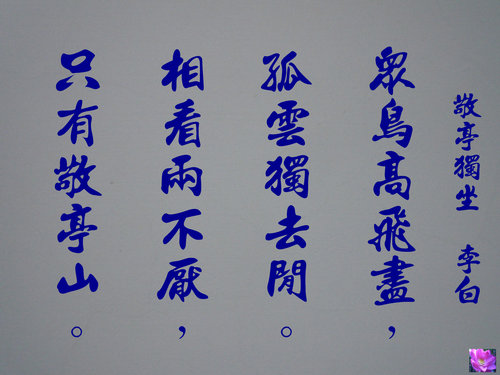 敬亭獨坐 李白
眾鳥高飛盡，
孤雲獨去閒。
相看兩不厭，
只有敬亭山。